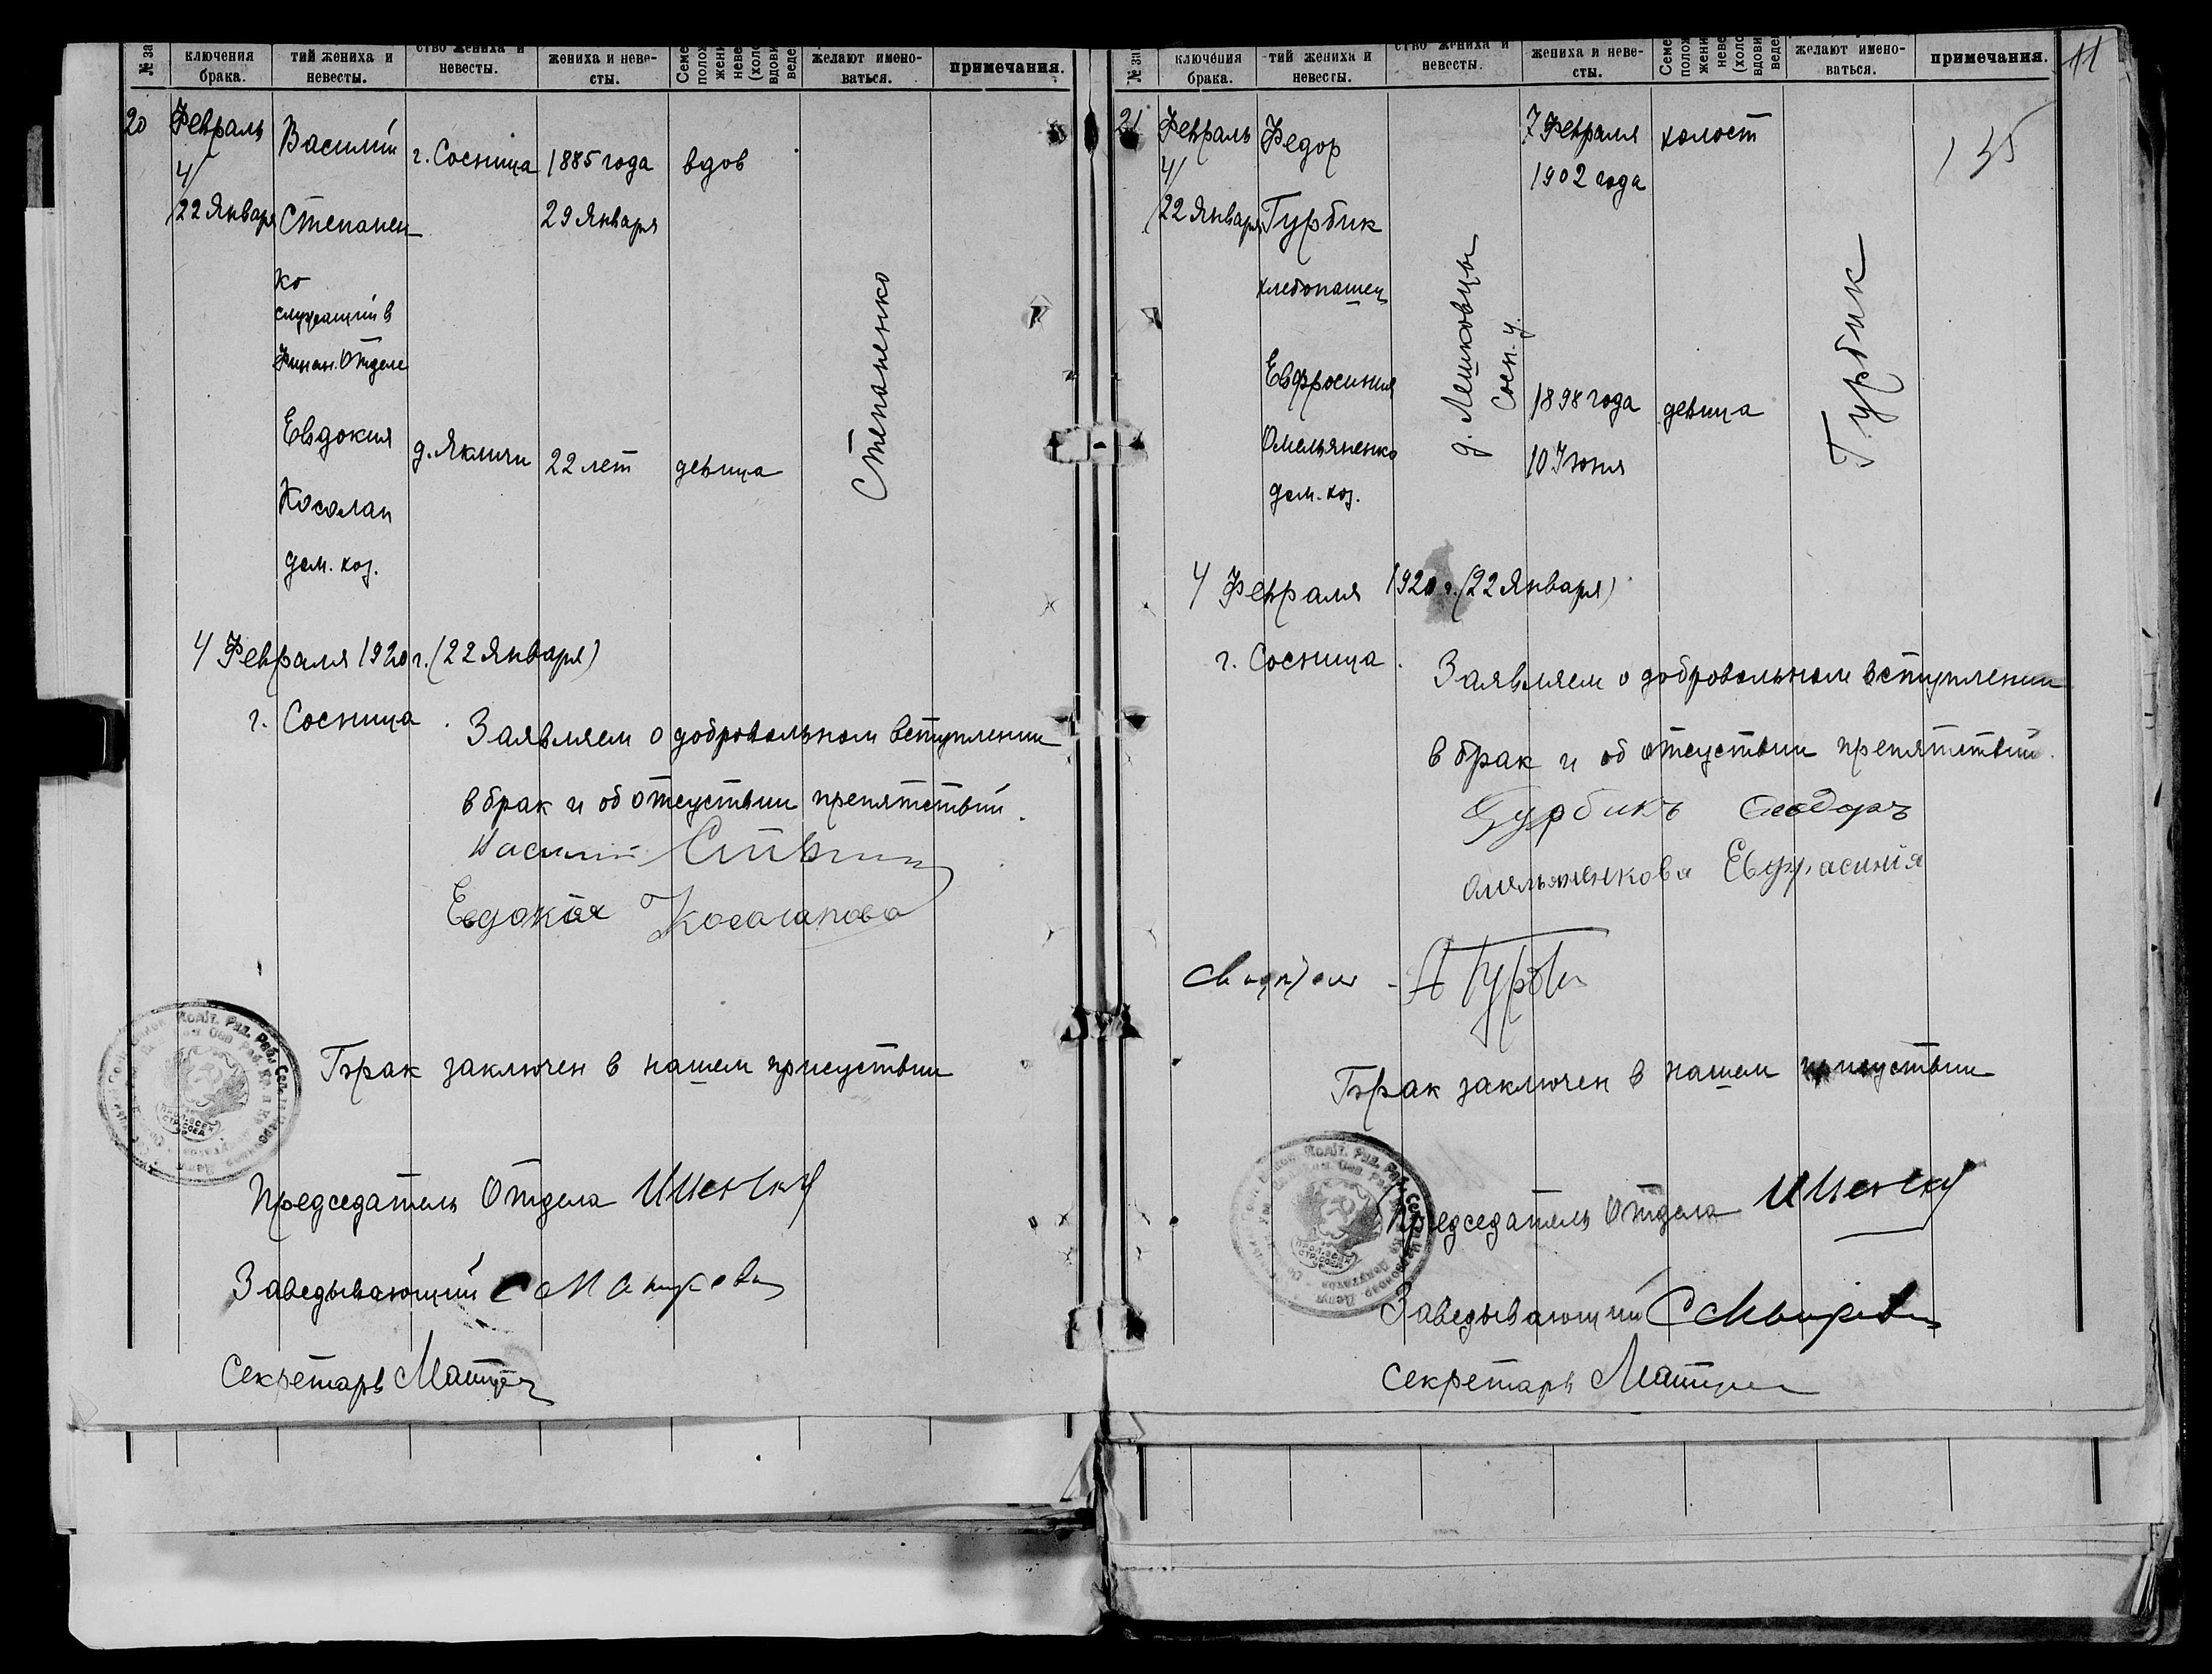 № за
ключения брака.
тий жениха и невесты.
ство жениха и невесты.
жениха и неве-
сты.
Семе
полож
жени
неве
(холо
вдови
веде
желают имено-
ваться.
примечания.
20
Февраль
4/
22 Января
Василий
Степанен-
ко
служащий в
Финан. Отделе
г. Сосница
1885 года
29 Января
вдов
Степаненко
Евдокия
Косолап
дом. хоз.
д. Якличи
22 лет
девица
4 Февраля 1920 г. (22 Января)
г. Сосница.
Заявляем о добровольном вступлении
в брак и об отсуствии препятствий.
Василий
Евдокия Косалапова
Брак заключен в нашем присуствии
Председатель Отдела
Заведывающий
Секретарь
№ за
ключения
брака.
тий жениха и
невесты.
ство жениха и
невесты.
жениха и неве-
сты.
Семе
полож
жени
неве
(холо
вдови
веде
желают имено-
ваться.
примечания.
11
21
Февраль
4/
22 Января
Федор
Гурбик
хлебопашец
7 Февраля
1902 года
холост
135
д. Лешковцы
Сосн. у.
Гурбик
Евфросиния
Омельяненко
дом. хоз.
1898 года
10 Июня
девица
4 Февраля 1920 г. (22 Января)
г. Сосница.
Заявляем о добровольном вступлении
в брак и об отсуствии препятствий.
Гурбикъ Феодоръ
Омельяненкова Евфрасинія
Брак заключен в нашем присуствии
Председатель Отдела
Заведывающий
Секретарь